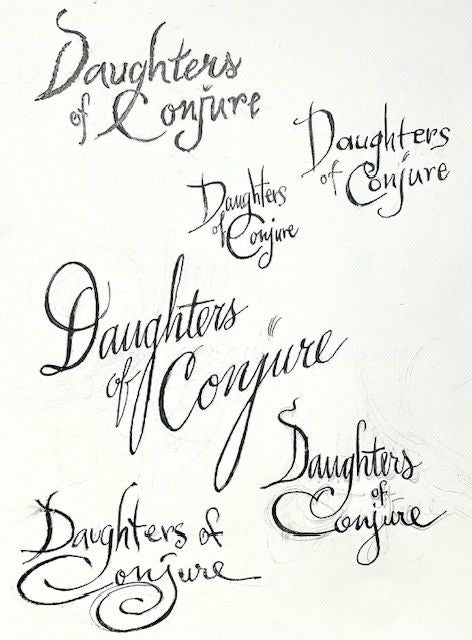 Daughters
of Conjure
Daughters
of Conjure
Daughters
of
Conjure
Daughters
of Conjure
Daughters
of
Conjure
Daughters of
Conjure